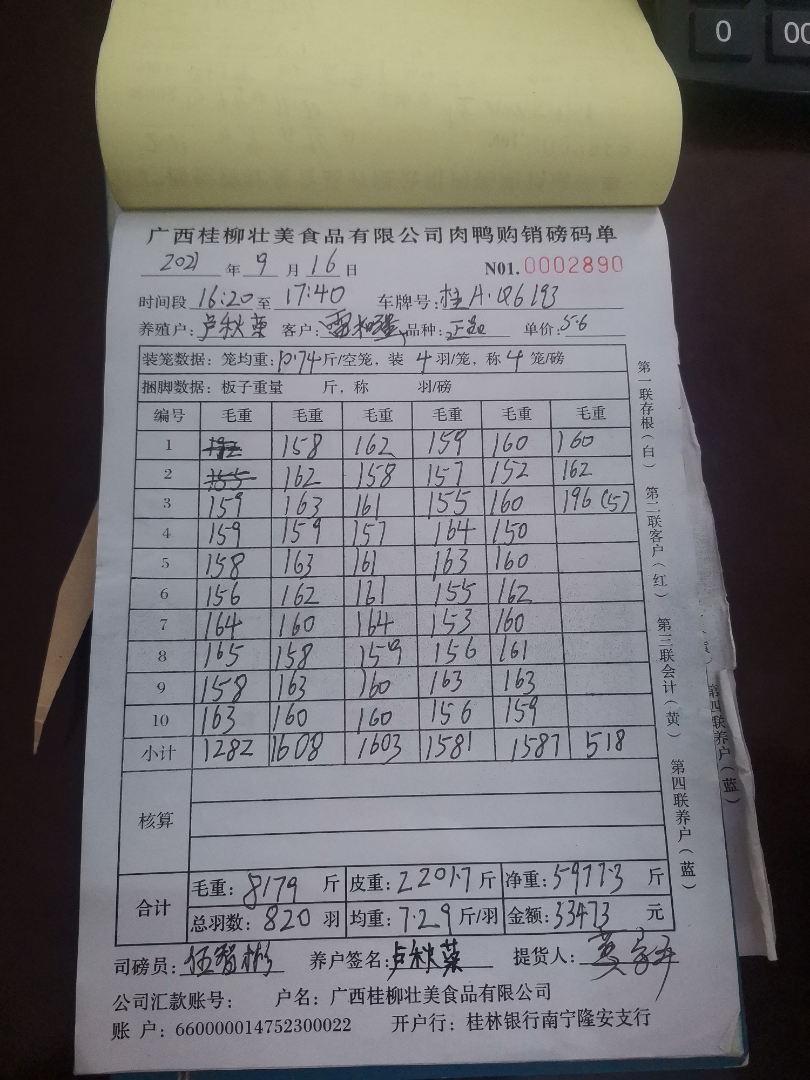 0 00
广西桂柳壮美食品有限公司肉鸭购销磅码单
2021 年 9 月 16 日 N01.0002890
时间段 16:20 至 17:40 车牌号: 桂A·Q6193
养殖户: 卢秋菜 客户: 品种: 单价: 5.6
装笼数据: 笼均重: 10.74 斤/空笼, 装 4 羽/笼, 称 4 笼/磅
捆脚数据: 板子重量 斤, 称 羽/磅
编号 毛重 毛重 毛重 毛重 毛重 毛重
1 158 162 159 160 160
2 162 158 157 152 162
3 159 163 161 155 160 196 (5)
4 159 159 157 164 150
5 158 163 161 163 160
6 156 162 161 155 162
7 164 160 164 153 160
8 165 158 159 156 161
9 158 163 160 163 163
10 163 160 160 156 159
小计 1282 1608 1603 1581 1587 518
核算
合计
毛重: 8179 斤 皮重: 2201.7 斤 净重: 5977.3 斤
总羽数: 820 羽 均重: 7.29 斤/羽 金额: 33473 元
司磅员: 伍智彬 养户签名: 卢秋菜 提货人:
公司汇款账号: 户名: 广西桂柳壮美食品有限公司
账 户: 660000014752300022 开户行: 桂林银行南宁隆安支行
第一联存根(白) 第二联客户(红) 第三联会计(黄) 第四联养户(蓝)
第四联养户(蓝)